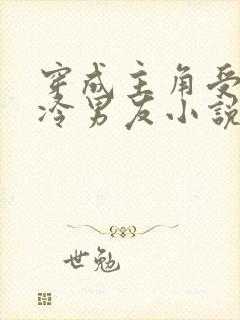 穿成主角受
冷男友小說
世勉